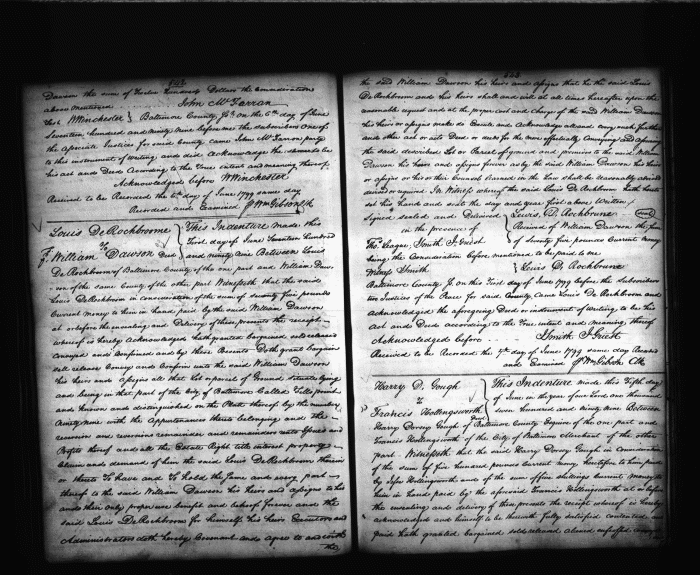 542
Dawson the sum of Twelve hundred Dollars the Consideration
above mentioned John McFarran
Test WWinchester } Baltimore County Sct. on the 6th day of June
Seventeen hundred and ninety Nine before me the subscriber one of
the Associate Justices for said County came John McFarran party
to this instrument of writing and did acknowledge the same to be
his act and Deed According to the True intent and meaning thereof
Acknowledged before WWinchester
Received to be Recorded the 6th day of June 1799 same day
Recorded and Examined Wm Gibson Clk
Louis DeRochbroom
To
William Dawson Deed
This Indenture made this
First day of June Seventeen hundred
and ninety Nine Between Louis
De Rochbroom of Baltimore County of the one part and William Daw-
son of the same County of the other part Witnesseth that the said
Louis DeRochbroom in consideration of the sum of seventy five pounds
Current money to him in hand paid by the said William Dawson
at or before the ensealing and Delivery of these presents the receipt
whereof is hereby Acknowledged hath granted bargained sold released
conveyed and Confirmed and by these Presents Doth grant bargain
sell release Convey and Confirm unto the said William Dawson
his heirs and Assigns all that Lot or parcel of Ground situate lying
and being in that part of the City of Baltimore Called Fells point
and known and distinguished on the Plat thereof by the number
Ninety Nine with the Appurtenances thereto belonging and the
reversion and reversions remainder and remainders rents Issues and
Profits thereof and all the Estate Right title interest property
Claim and demand of him the said Louis DeRochbroom therein
or thereto To have and To hold the same and every part
thereof to the said William Dawson his heirs and assigns to his
and their only proper use benefit and behoof forever and the
said Louis DeRochbroom for himself his heirs Executors and
Administrators doth hereby Covenant and agree to and with
the
543
the said William Dawson his heirs and assigns that he the said Louis
DeRochbroom and his heirs shall and will at all times hereafter upon the
reasonable request and at the proper cost and Charge of the said William Dawson
his heirs or assigns make do Execute and Acknowledge all and every such further
and other act or acts Deed or deeds for the more effectually Conveying and assuring
the said described Lot or Parcel of ground and premises to the said William
Dawson his heirs and assigns forever as by the said William Dawson his heirs
or assigns or his or their Council learned in the Law shall be reasonably advised
devised or required In Witness whereof the said Louis De Rochbroom hath hereto
set his hand and seal the day and year first above Written
Signed sealed and Delivered } Lewis D. Rochbrune (seal)
in the presence of Received of William Dawson the sum
Thos. League, Smith J. Guest of seventy five pounds Current money
being the Consideration before mentioned to be paid to me
Witness Smith } Louis D. Rochbrune
Baltimore County Sc on this First day of June 1799 before the subscribers
two Justices of the Peace for said County came Louis De Rochbroom and
acknowledged the aforegoing Deed or instrument of Writing to be his
Act and Deed according to the True intent and meaning thereof
Acknowledged before Smith J Guest
Received to be Recorded the 7th day of June 1799 same day Recorded
and Examined Wm Gibson Clk
Harry D. Gough
To
Francis Hollingsworth
Deed
This Indenture made this Fifth day
of June in the year of our Lord one thousand
seven hundred and ninety nine Between
Harry Dorsey Gough of Baltimore County Esquire of the one part and
Francis Hollingsworth of the City of Baltimore Merchant of the other
part Witnesseth that the said Harry Dorsey Gough in Consideration
of the sum of five hundred pounds Current money heretofore to him paid
by Jesse Hollingsworth and of the sum of five shillings Current money to
him in hand paid by the aforesaid Francis Hollingsworth at or before
the ensealing and delivery of these presents the receipt whereof is hereby
acknowledged and himself to be therewith fully satisfied contented and
paid hath granted bargained sold released aliened enfeoffed